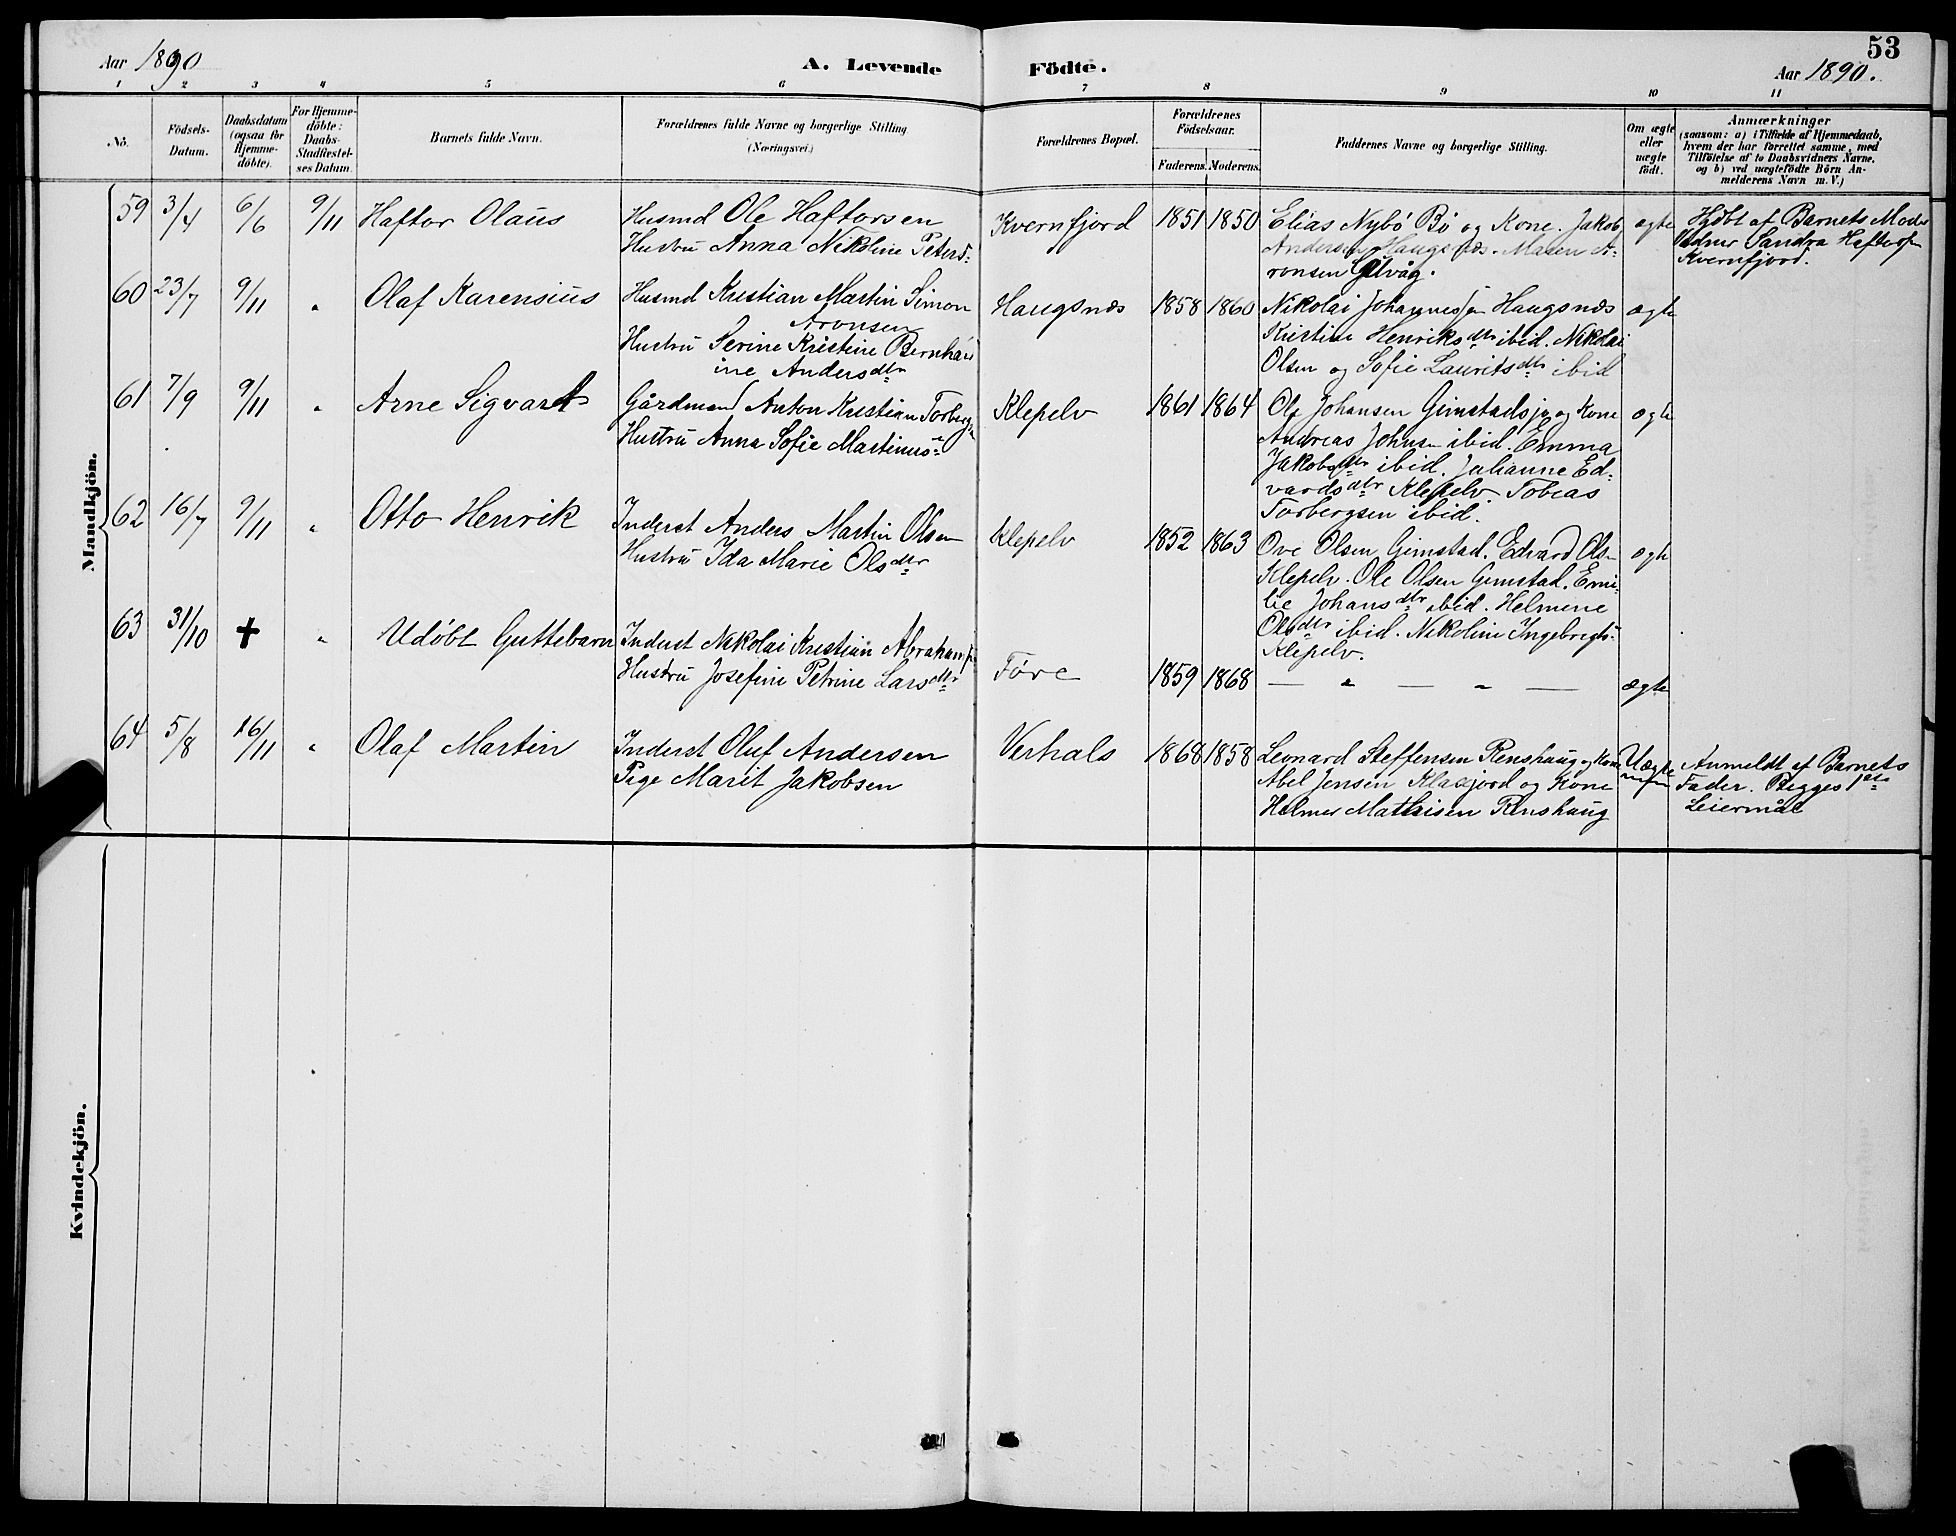 53
Aar 1890
A. Levende Födte.
Aar 1890.
1 2 3 4 5 6 7 8 9 10 11
No.
Födsels-
Datum.
Daabsdatum
(ogsaa for
Hjemme-
döbte).
For Hjemme-
döbte:
Daabs-
Stadfæstel-
ses Datum.
Barnets fulde Navn.
Forældrenes fulde Navne og borgerlige Stilling
(Næringsvei.)
Forældrenes Bopæl.
Forældrenes
Födselsaar.
Faderens. Moderens.
Faddernes Navne og borgerlige Stilling.
Om ægte
eller
uægte
födt.
Anmærkninger
(saasom: a) i Tilfælde af Hjemmedaab,
hvem der har forrettet samme, med
Tilföielse af to Daabsvidners Navne,
og b) ved uægtefödte Börn An-
melderens Navn m. V.)
Mandkjön.
59 3/4 6/6 9/11 Haftor Olaus
Husmd Ole Haftorsen
Hustru Anna Nikoline Petersd:
Kvernfjord 1851 1850
Elias Nybö Bö og Kone. Jakob
Andersen Haugsnæs. Maren A-
ronsen Gilvåg.
ægte
Hjdbt af Barnets Moder
Vidner Sandra Haftorsen
Kvernfjord.
60 23/7 9/11 " Olaf Karensius
Husmd Kristian Martin Simon
Aronsen
Hustru Serine Kristine Bernhar
ine Andersdtr
Haugsnæs 1858 1860
Nikolai Johannessen Haugsnæs
Kristine Henriksdtr ibid. Nikolai
Olsen og Sofie Lauritsdtr ibid
ægte
61 7/9 9/11 " Arne Sigvart
Gårdmand Anton Kristian Torbergsen
Hustru Anna Sofie Martinus:
Klepelv 1861 1864
Ole Johansen Gimstadsjo og Kone
Andreas Johnsen ibid. Emma
Jakobsdtr ibid. Johanne Ed-
vardsdtr Klepelv Tobias
Torbergsen ibid.
ægte
62 16/7 9/11 " Otto Henrik
Inderst Anders Martin Olsen
Hustru Ida Marie Olsdtr
Klepelv 1852 1863
Ove Olsen Gimstad. Edvard Olsen
Klepelv. Ole Olsen Gimstad. Emi-
lie Johansdtr ibid. Helmine
Olsdtr ibid. Nikoline Ingebrigts-
Klepelv.
ægte
63 31/10 + " Udöbt Guttebarn
Inderst Nikolai Kristian Abrahamsen
Hustru Josefine Petrine Larsdtr
Före 1859 1868 — " — " — ægte
64 5/8 16/11 " Olaf Martin
Inderst Oluf Andersen
Pige Marit Jakobsen
Verhals 1868 1858
Leonard Steffensen Renshaug og Kone
Abel Jensen Klaksjord og Kone
Helmer Mathisen Renshaug
Uægte
Anmeldt af Barnets
Fader. Begges 1ste
Leiermål
Kvindekjön.